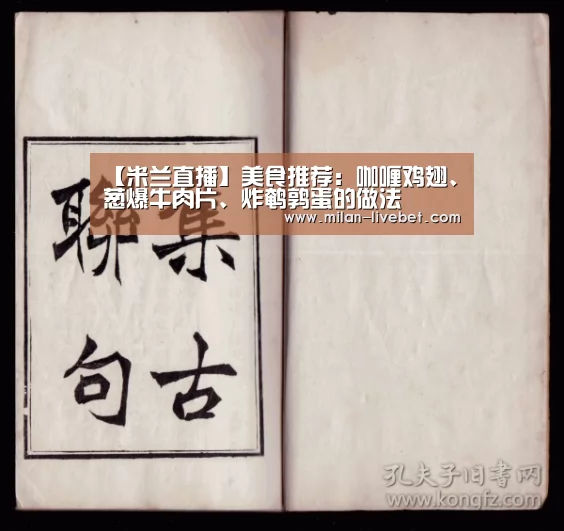 【米兰直播】美食推荐：咖喱鸡翅、
葱爆牛肉片、炸鹌鹑蛋的做法
www.milan-livebet.com
集古
聯句
孔夫子旧书网
www.kongfz.com